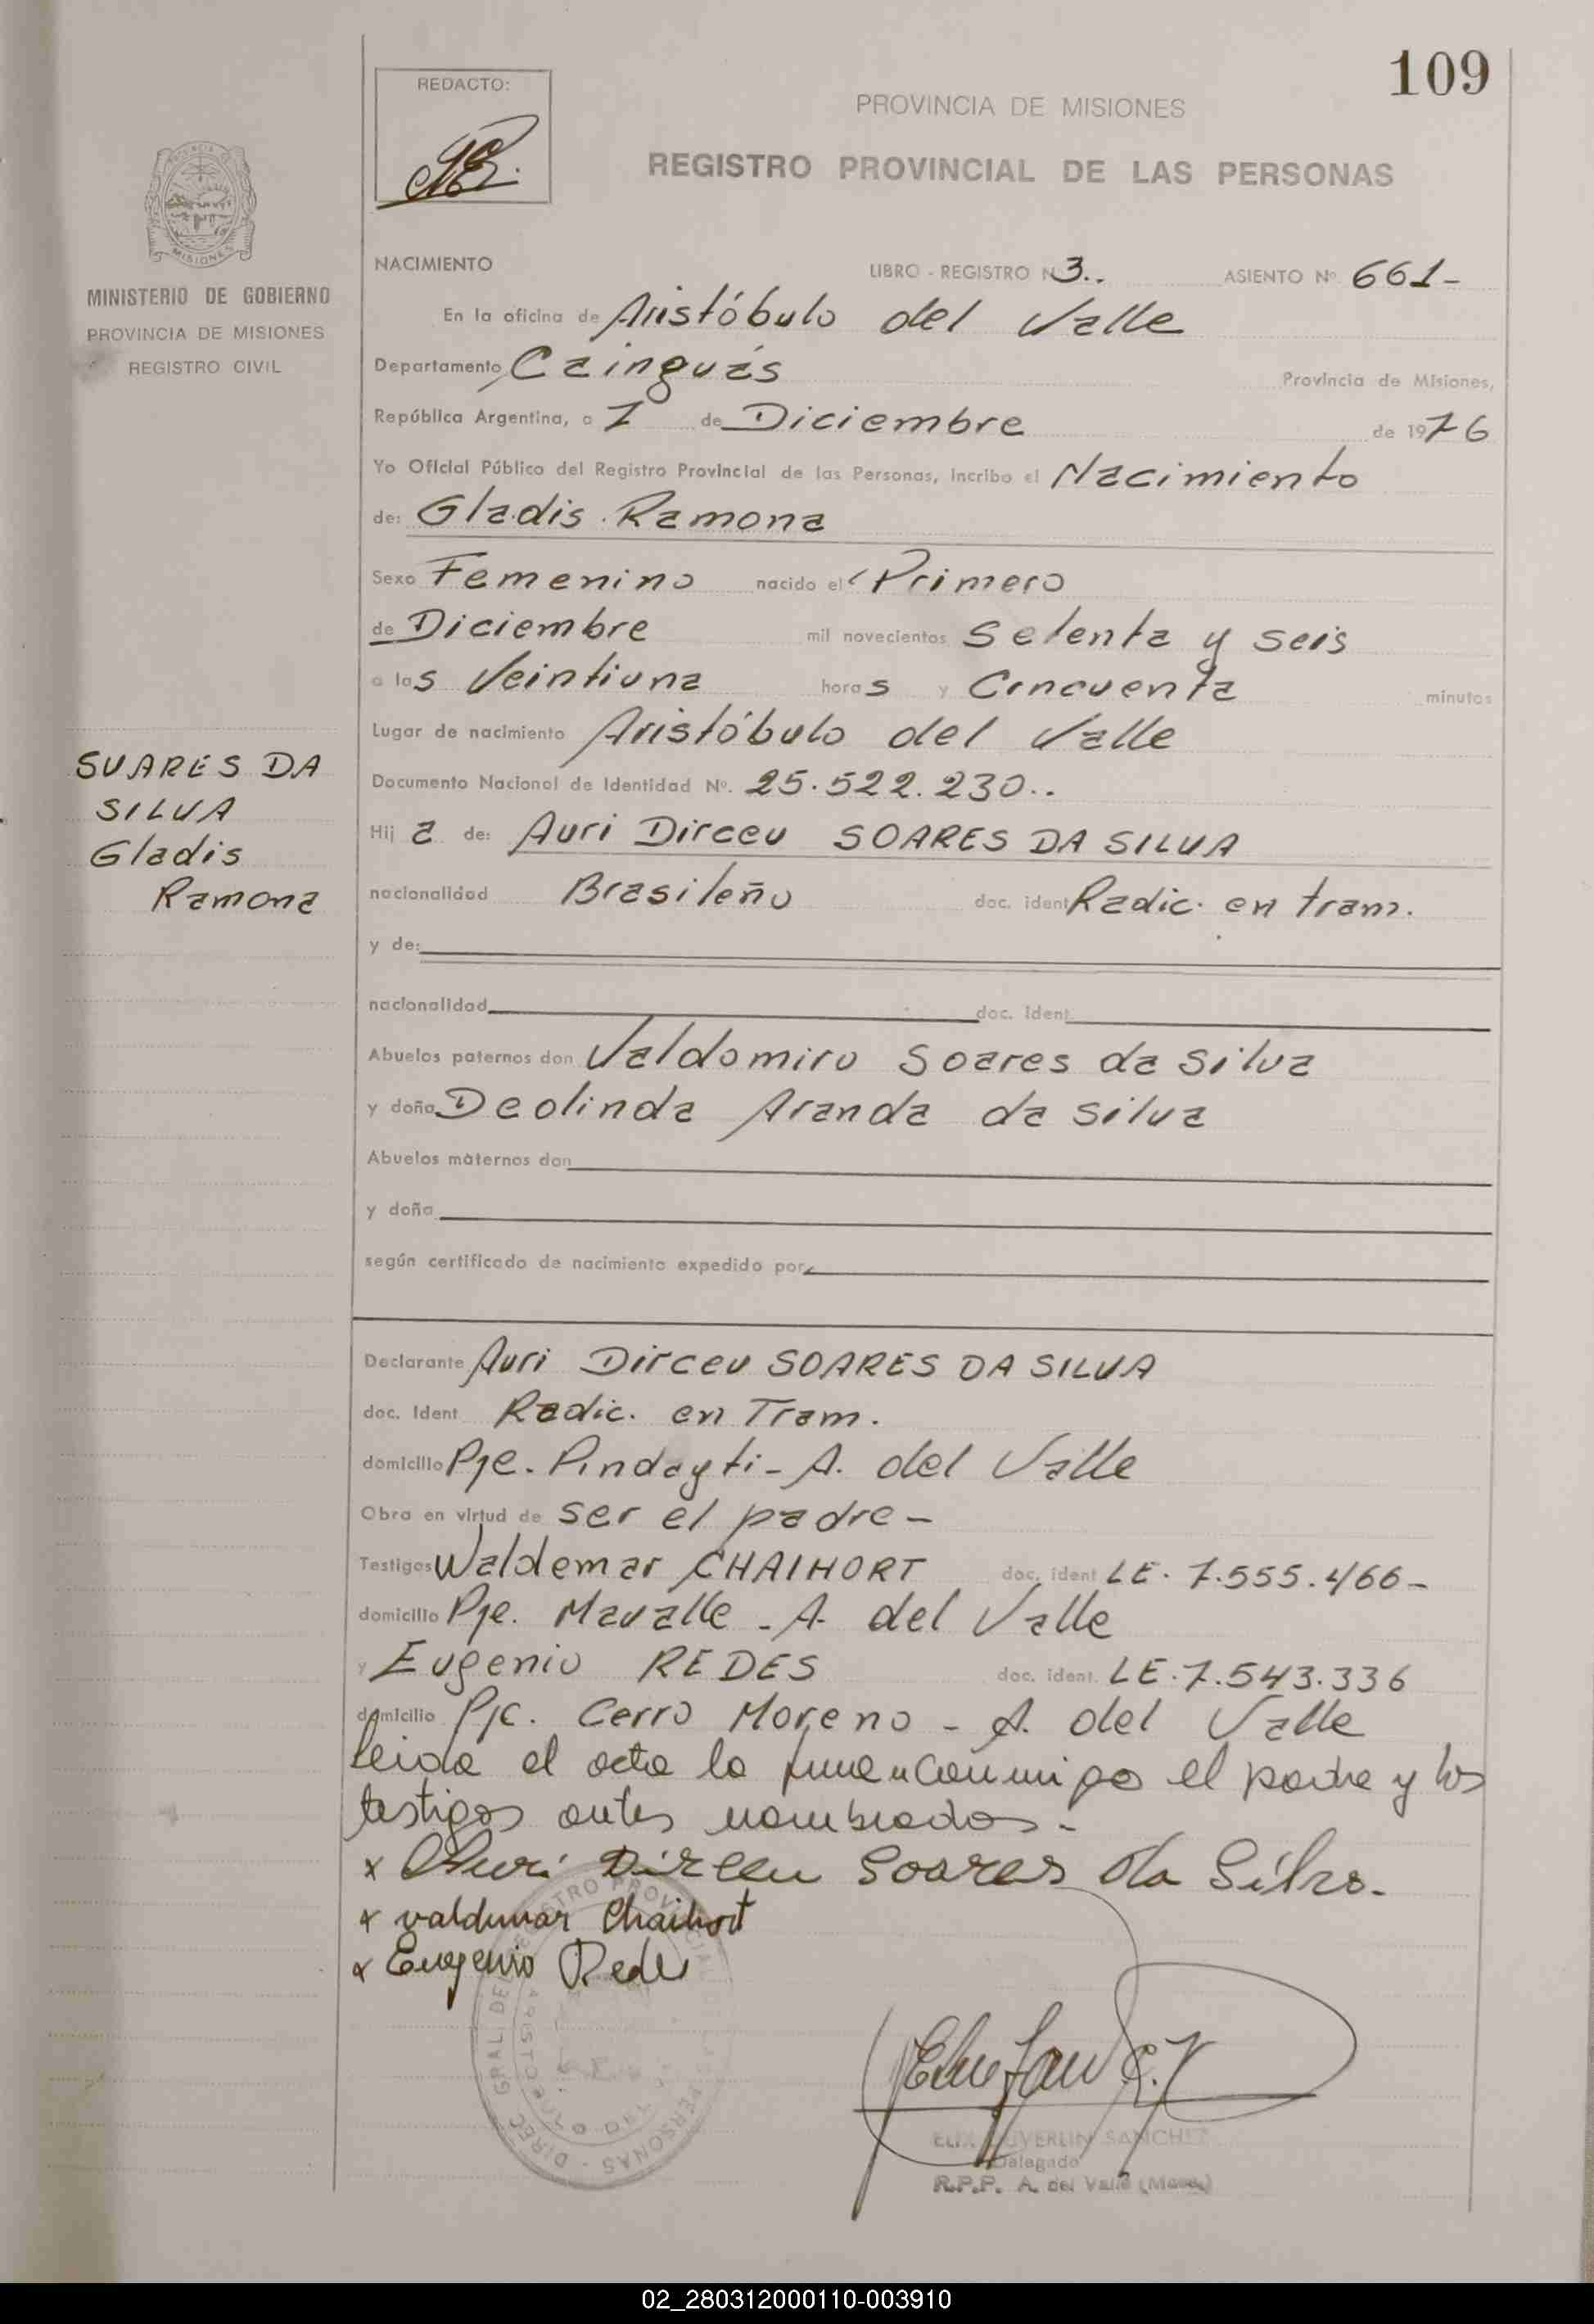 109
REDACTO:
PROVINCIA DE MISIONES
REGISTRO PROVINCIAL DE LAS PERSONAS
MISIONES
MINISTERIO DE GOBIERNO
PROVINCIA DE MISIONES
REGISTRO CIVIL
NACIMIENTO LIBRO - REGISTRO Nº 3.. ASIENTO Nº 661-
En la oficina de Aristóbulo del Valle
Departamento Cainguás Provincia de Misiones,
República Argentina, a 7 de Diciembre de 1976
Yo Oficial Público del Registro Provincial de las Personas, incribo el Nacimiento
de: Gladis Ramona
Sexo Femenino nacido el Primero
de Diciembre mil novecientos Setenta y seis
a las Veintiuna horas y Cincuenta minutos
Lugar de nacimiento Aristóbulo del Valle
Documento Nacional de Identidad Nº. 25.522.230..
SUARES DA
SILVA
Gladis
Ramona
Hij a de: Auri Dirceu SOARES DA SILVA
nacionalidad Brasileño doc. ident Radic. en tram.
y de:
nacionalidad doc. ident
Abuelos paternos don Valdomiro Soares da Silva
y doña Deolinda Aranda da Silva
Abuelos maternos don
y doña
según certificado de nacimiento expedido por
Declarante Auri Dirceu SOARES DA SILVA
doc. Ident Radic. en Tram.
domicilio Pje. Pindayti - A. del Valle
Obra en virtud de ser el padre -
Testigos Waldemar CHAIHORT doc. ident LE. 7.555.466-
domicilio Pje. Mavalle - A. del Valle
y Eugenio REDES doc. ident. LE. 7.543.336
domicilio Pje. Cerro Moreno - A. del Valle
leida el acta la firman conmigo el padre y los
testigos antes nombrados.-
x Auri Dirceu Soares da Silva.
x valdemar Chaihort
x Eugenio Redes
DIREC. GRAL. DEL REGISTRO PROVINCIAL DE LAS PERSONAS
SANCHEZ
Delegado
R.P.P. A. del Valle (Mnes.)
02_280312000110-003910